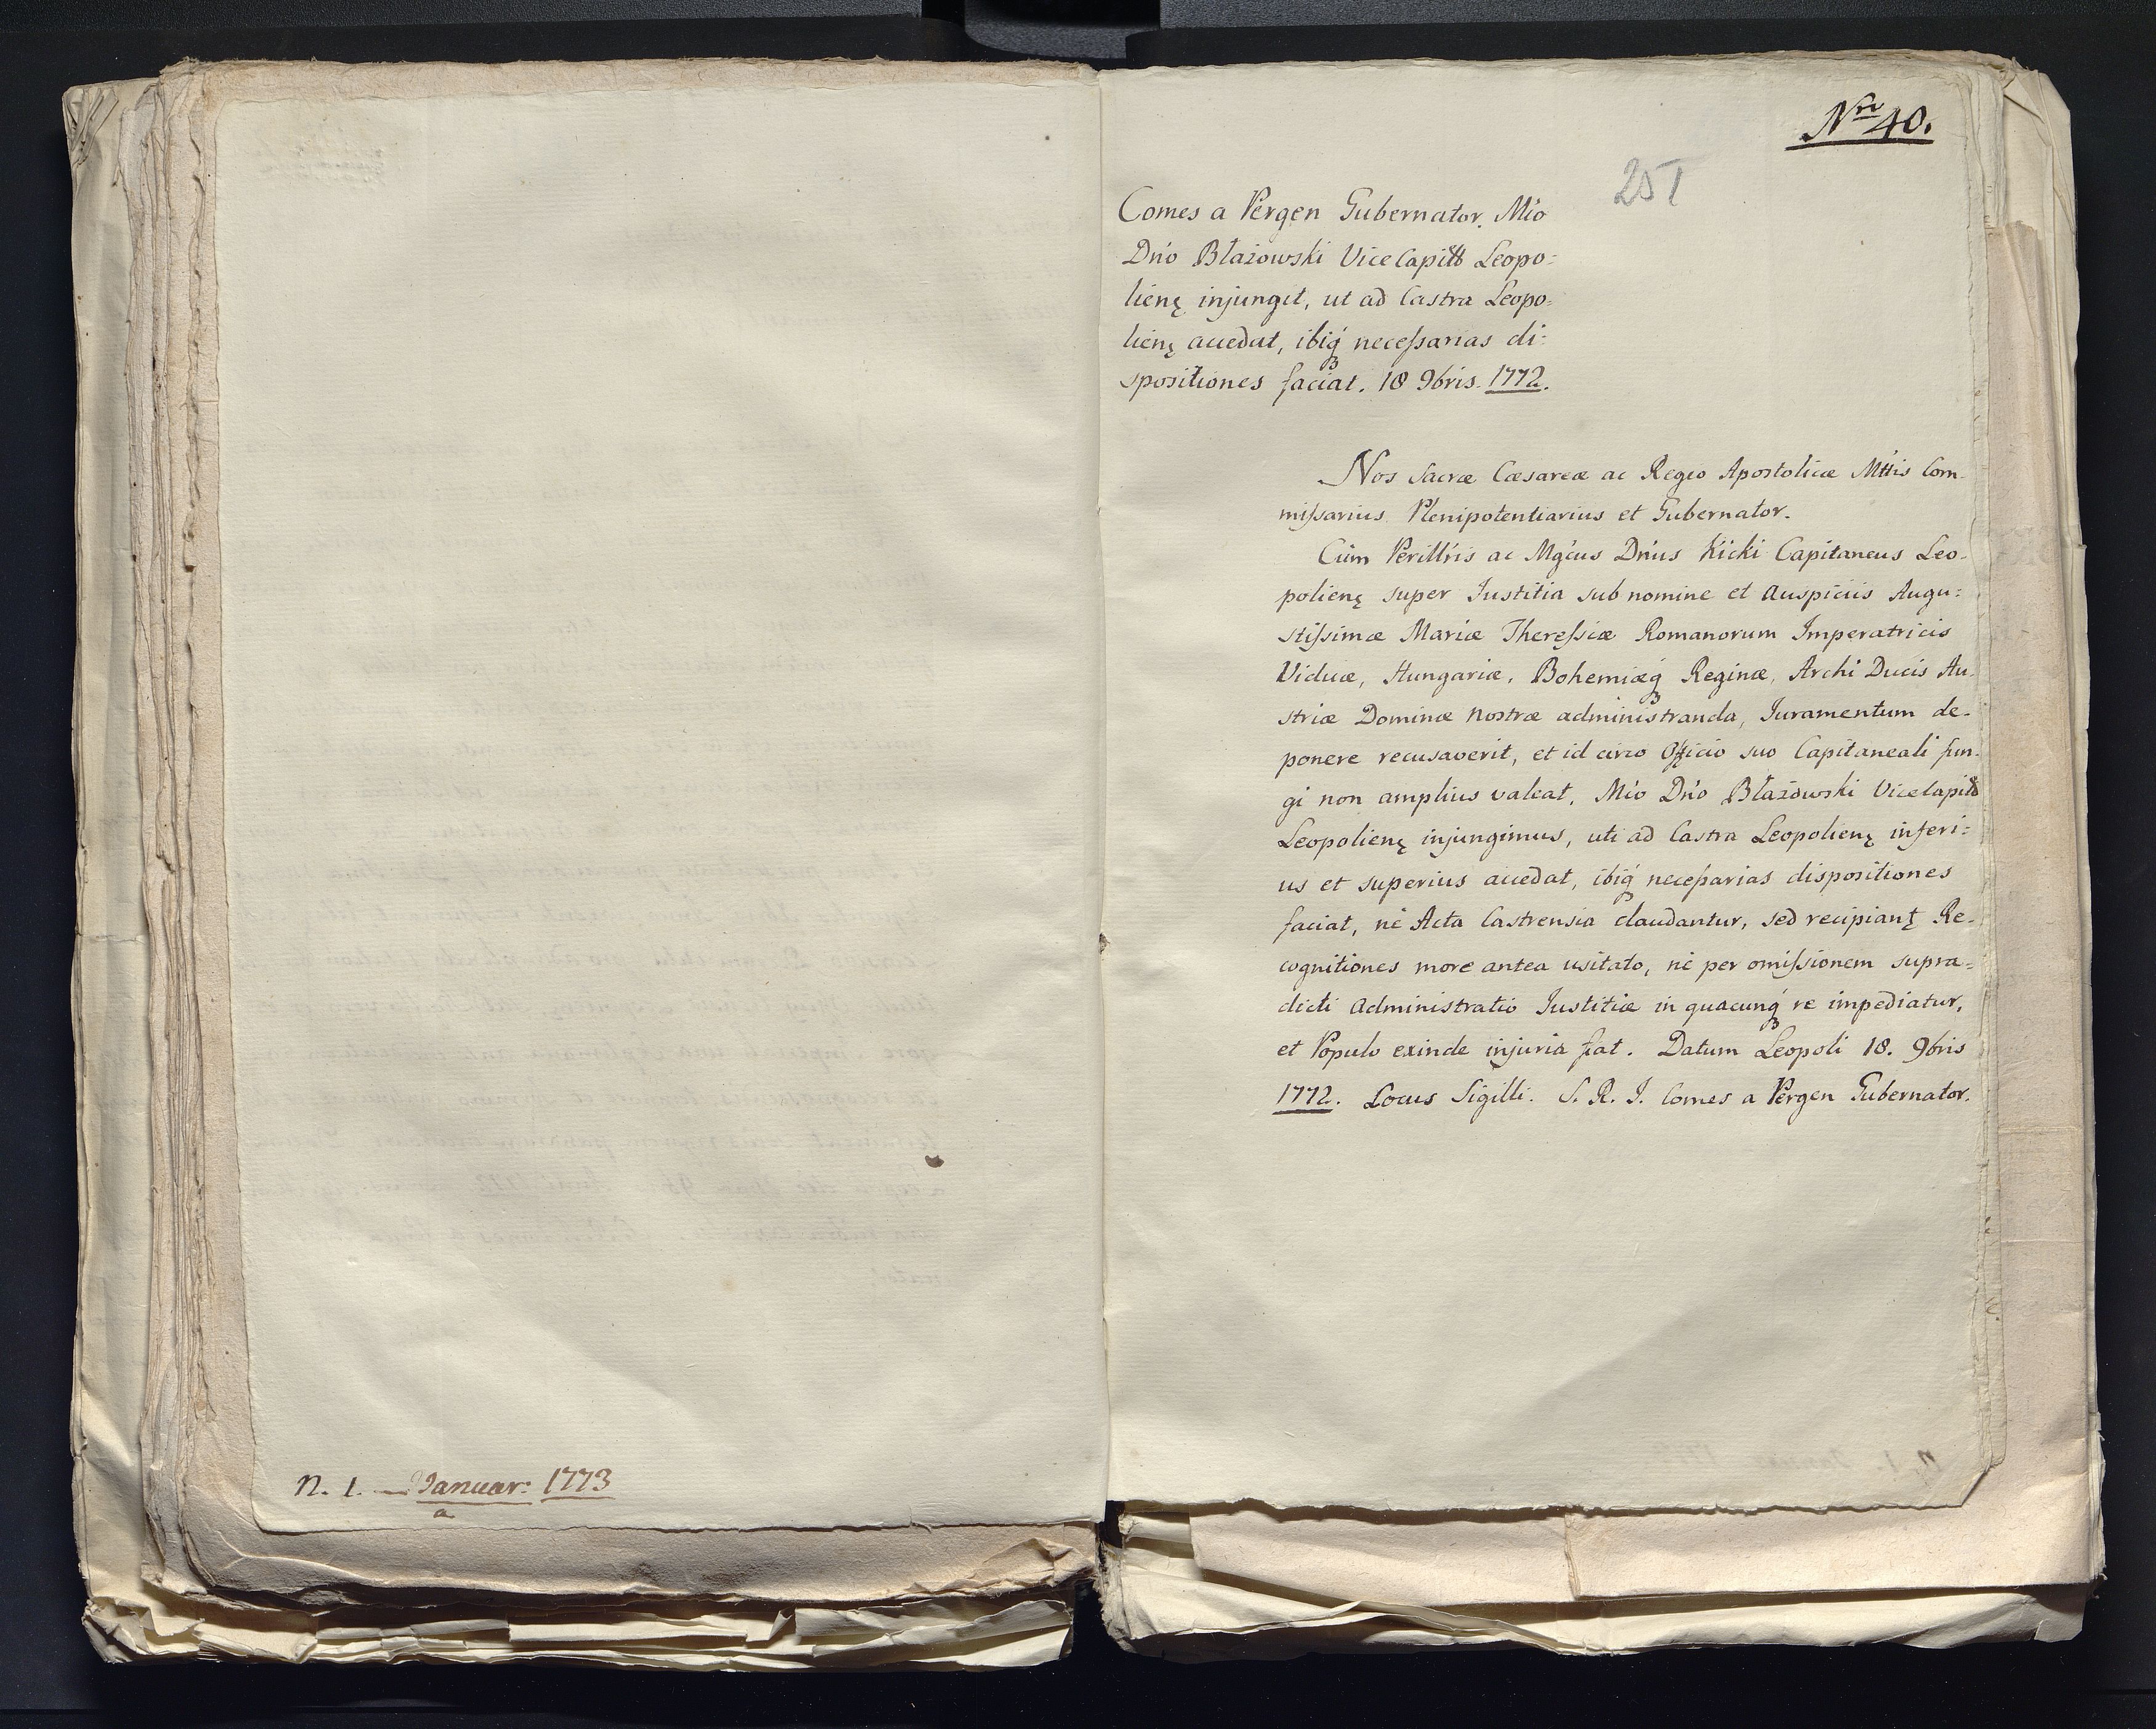 n. 1. — Januar: 1773
a
Nro 40.
251
Comes a Pergen Gubernator. Mío
Dńo Błażowski ViceCapitt Leopo:
lienę injungit, ut ad Castra Leopo:
lienę accedat, ibiq́ʒ neceſsarias di:
spositiones faciat. 18 9bris. 1772.
Nos Sacræ Cæsareæ ac Regio Apostolicæ Mttis Com-
miſsarius Plenipotentiarius et Gubernator.
Cùm Perillŕis ac Mgćus Dńus Kicki Capitaneus Leo-
polienę super Iustitia sub nomine et Auspiciis Augu:
stiſsimæ Mariæ Thereſsiæ Romanorum Imperatricis
Viduæ, Hungariæ, Bohemiæq́ʒ Reginæ, Archi Ducis Au-
striæ Dominæ Nostræ administranda, Iuramentum de-
ponere recusaverit, et id circo Officio suo Capitaneali fun-
gi non amplius valeat, Mío Dńo Błażowski ViceCapitt
Leopolienę injungimus, uti ad Castra Leopolienę inferi:
us et superius accedat, ibiq́ʒ neceſsarias dispositiones
faciat, nè Acta Castrensia claudantur, sed recipianţ Re-
cognitiones more antea usitato, nè per omiſsionem supra=
dicti Administratio Iustitiæ in quacunq́ʒ re impediatur,
et Populo exinde injuria fiat. Datum Leopoli 18. 9bris
1772. Locus Sigilli. S. R. I. Comes a Pergen Gubernator.